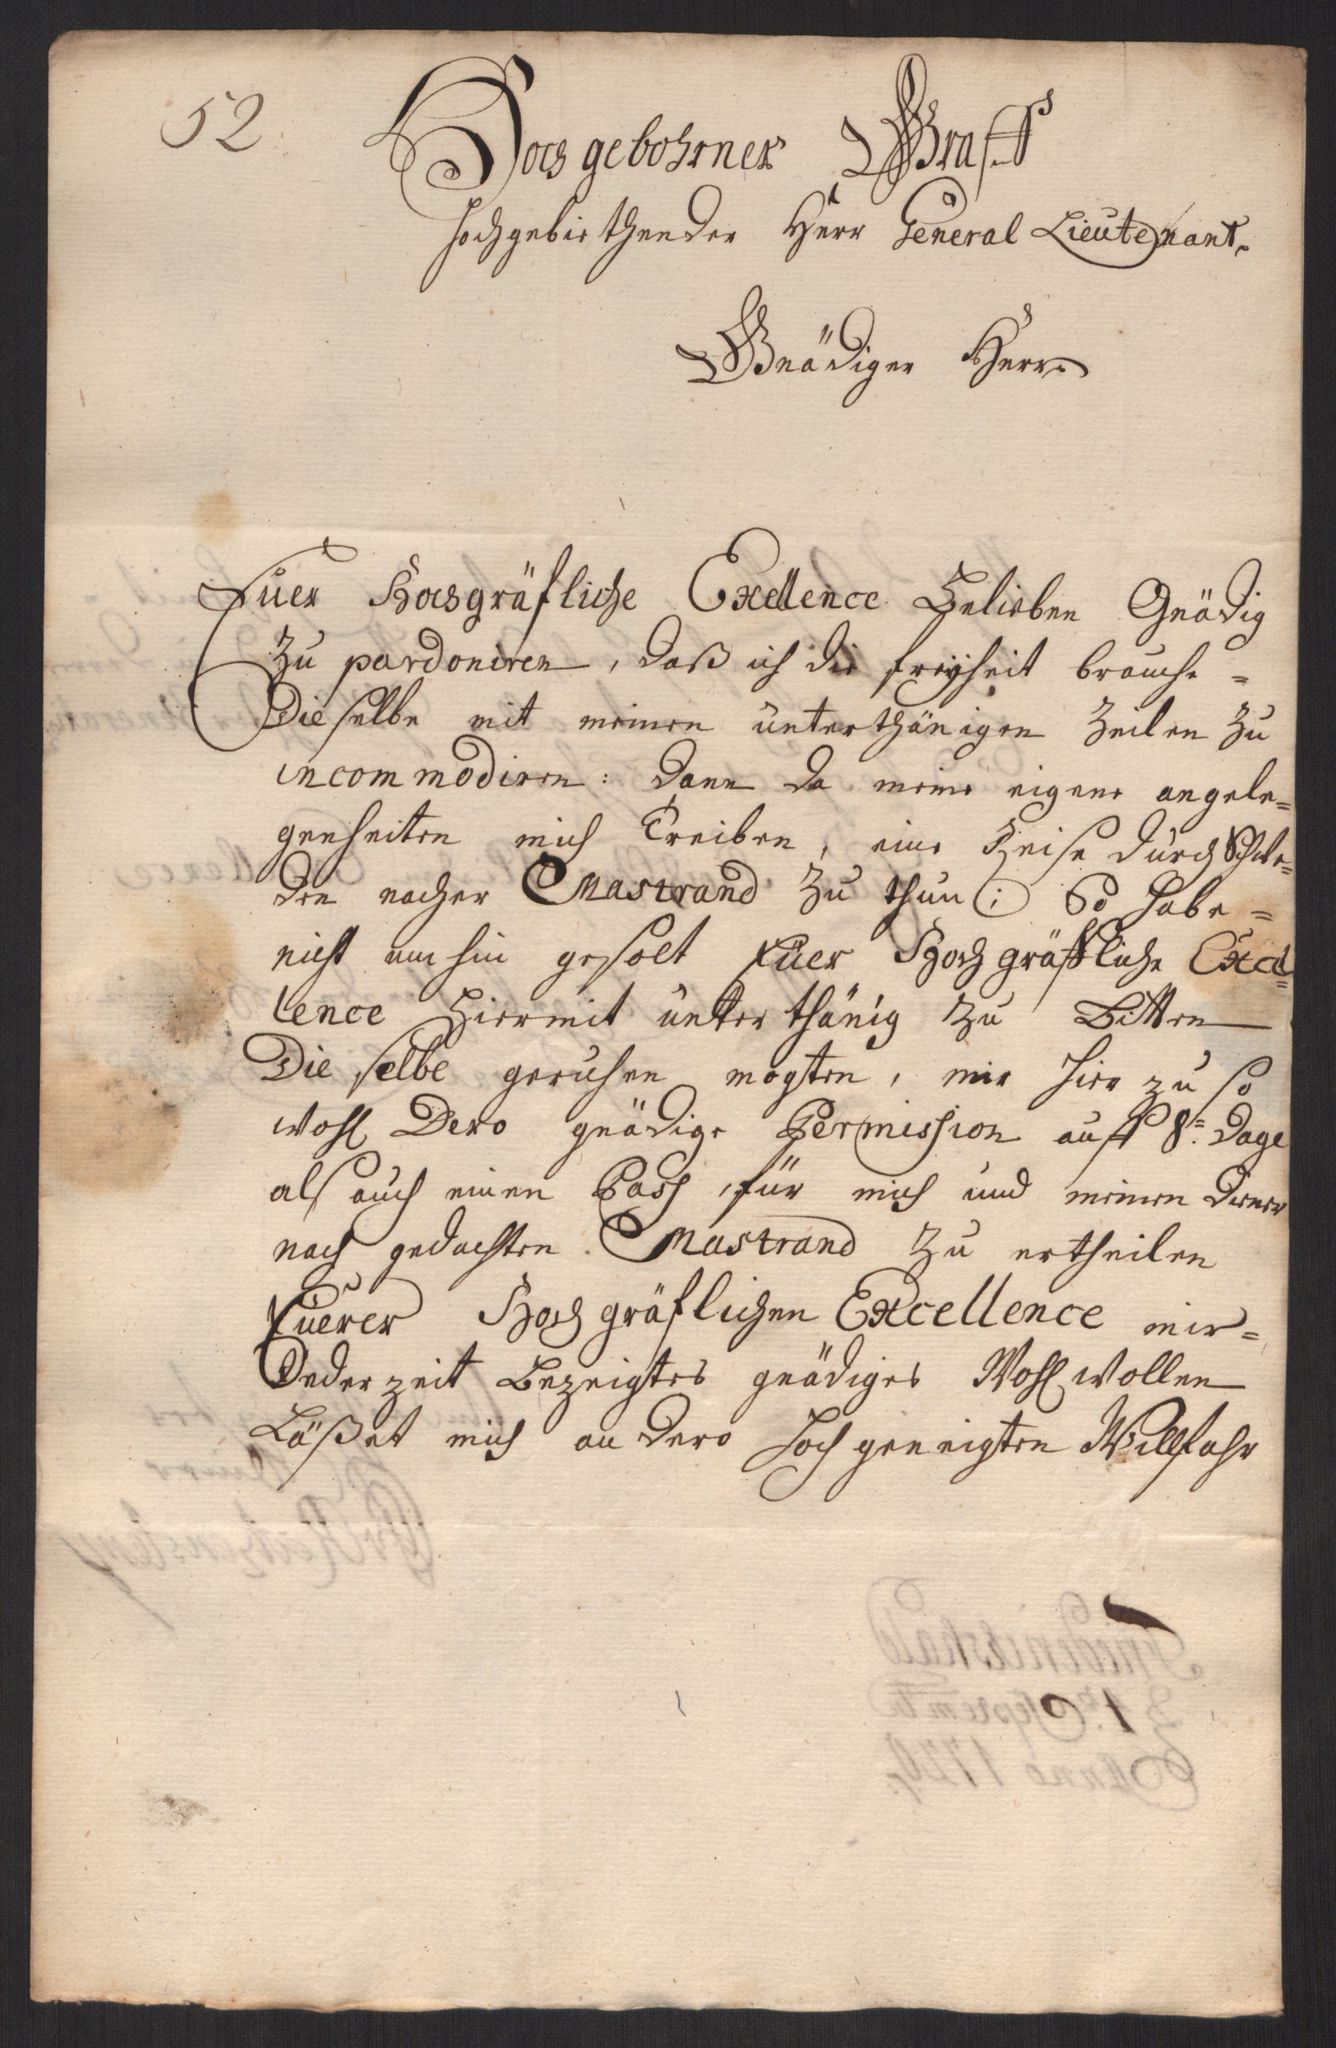 52
Hochgebohrner Graff
Hochgebiethender Herr General Lieutenant.
Gnädiger Herr
Euer Hochgräfliche Exellence Belieben Gnädig
zu pardoniren, daß ich die freyheit brauche =
Dieselbe mit meinen unterthänigen Zeilen zu
incommodiren: dann da meine eigene angele=
genheiten mich treiben, eine Reise durch Schwe=
den nacher Mastrand zu thun; So habe =
nicht umhin gesolt Euer Hochgräffliche Excel=
lence Hiermit unterthänig zu Bitten
Die selbe geruhen mogten, mir hier zu so
wohl Dero gnädige Permission auff 8: Dage
als auch einen Pass, für mich und meinen Diener
nach gedachten Mastrand zu ertheilen
Euerer Hochgräflichen Excellence mir=
Jederzeit Bezeigtes gnädiges Wohlwollen
Läßet mich an dero Hochgeneigten Willfahr